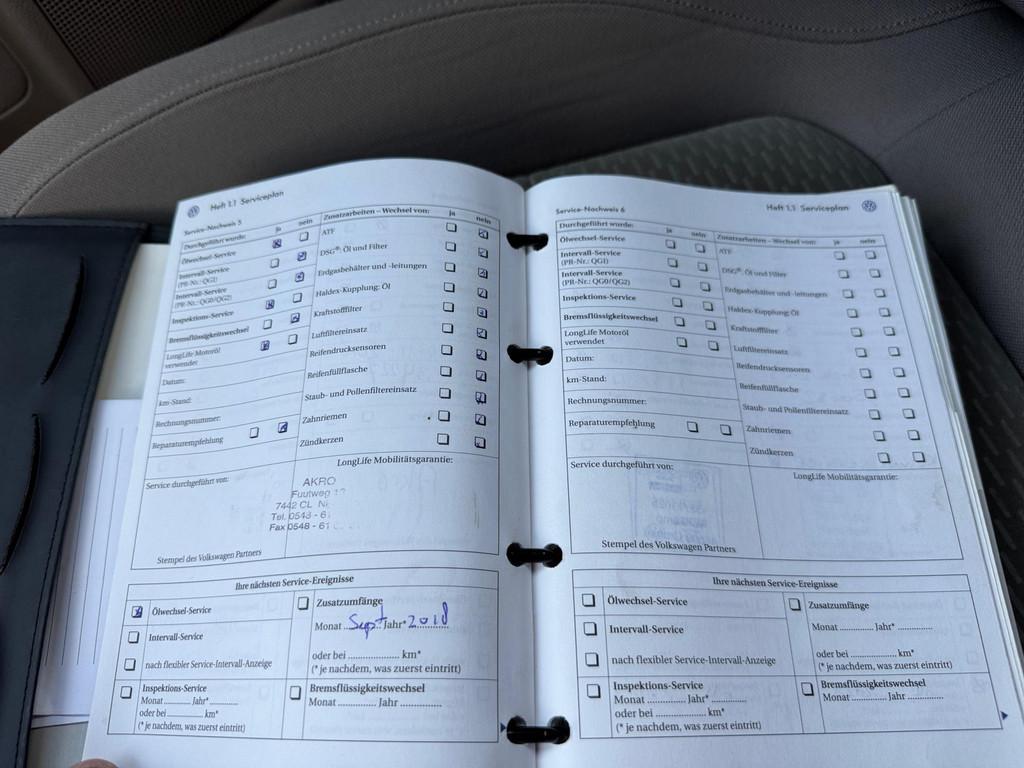 Heft 1.1 Serviceplan
Service-Nachweis 5
Durchgeführt wurde: ja nein
Ölwechsel-Service
Intervall-Service
(PR-Nr.: QG1)
Intervall-Service
(PR-Nr.: QG0/QG2)
Inspektions-Service
Bremsflüssigkeitswechsel
LongLife Motoröl
verwendet
Datum:
km-Stand:
Rechnungsnummer:
Reparaturempfehlung
Zusatzarbeiten – Wechsel von: ja nein
ATF
DSG®: Öl und Filter
Erdgasbehälter und -leitungen
Haldex-Kupplung: Öl
Kraftstofffilter
Luftfiltereinsatz
Reifendrucksensoren
Reifenfüllflasche
Staub- und Pollenfiltereinsatz
Zahnriemen
Zündkerzen
Service durchgeführt von:
LongLife Mobilitätsgarantie:
AKRO
Fuutweg
7442 CL
Tel. 0548 - 6
Fax 0548 - 61
Stempel des Volkswagen Partners
Ihre nächsten Service-Ereignisse
Ölwechsel-Service
Intervall-Service
nach flexibler Service-Intervall-Anzeige
Zusatzumfänge
Monat Sept Jahr* 2018
oder bei .................... km*
(* je nachdem, was zuerst eintritt)
Inspektions-Service
Monat ......... Jahr* .........
oder bei .............. km*
(* je nachdem, was zuerst eintritt)
Bremsflüssigkeitswechsel
Monat ............. Jahr ..............
Heft 1.1 Serviceplan
Service-Nachweis 6
Durchgeführt wurde: ja nein
Ölwechsel-Service
Intervall-Service
(PR-Nr.: QG1)
Intervall-Service
(PR-Nr.: QG0/QG2)
Inspektions-Service
Bremsflüssigkeitswechsel
LongLife Motoröl
verwendet
Datum:
km-Stand:
Rechnungsnummer:
Reparaturempfehlung
Zusatzarbeiten – Wechsel von: ja nein
ATF
DSG®: Öl und Filter
Erdgasbehälter und -leitungen
Haldex-Kupplung: Öl
Kraftstofffilter
Luftfiltereinsatz
Reifendrucksensoren
Reifenfüllflasche
Staub- und Pollenfiltereinsatz
Zahnriemen
Zündkerzen
Service durchgeführt von:
LongLife Mobilitätsgarantie:
Stempel des Volkswagen Partners
Ihre nächsten Service-Ereignisse
Ölwechsel-Service
Intervall-Service
nach flexibler Service-Intervall-Anzeige
Zusatzumfänge
Monat ............ Jahr* ............
oder bei .................... km*
(* je nachdem, was zuerst eintritt)
Inspektions-Service
Monat ......... Jahr* .........
oder bei .............. km*
(* je nachdem, was zuerst eintritt)
Bremsflüssigkeitswechsel
Monat ............. Jahr ..............